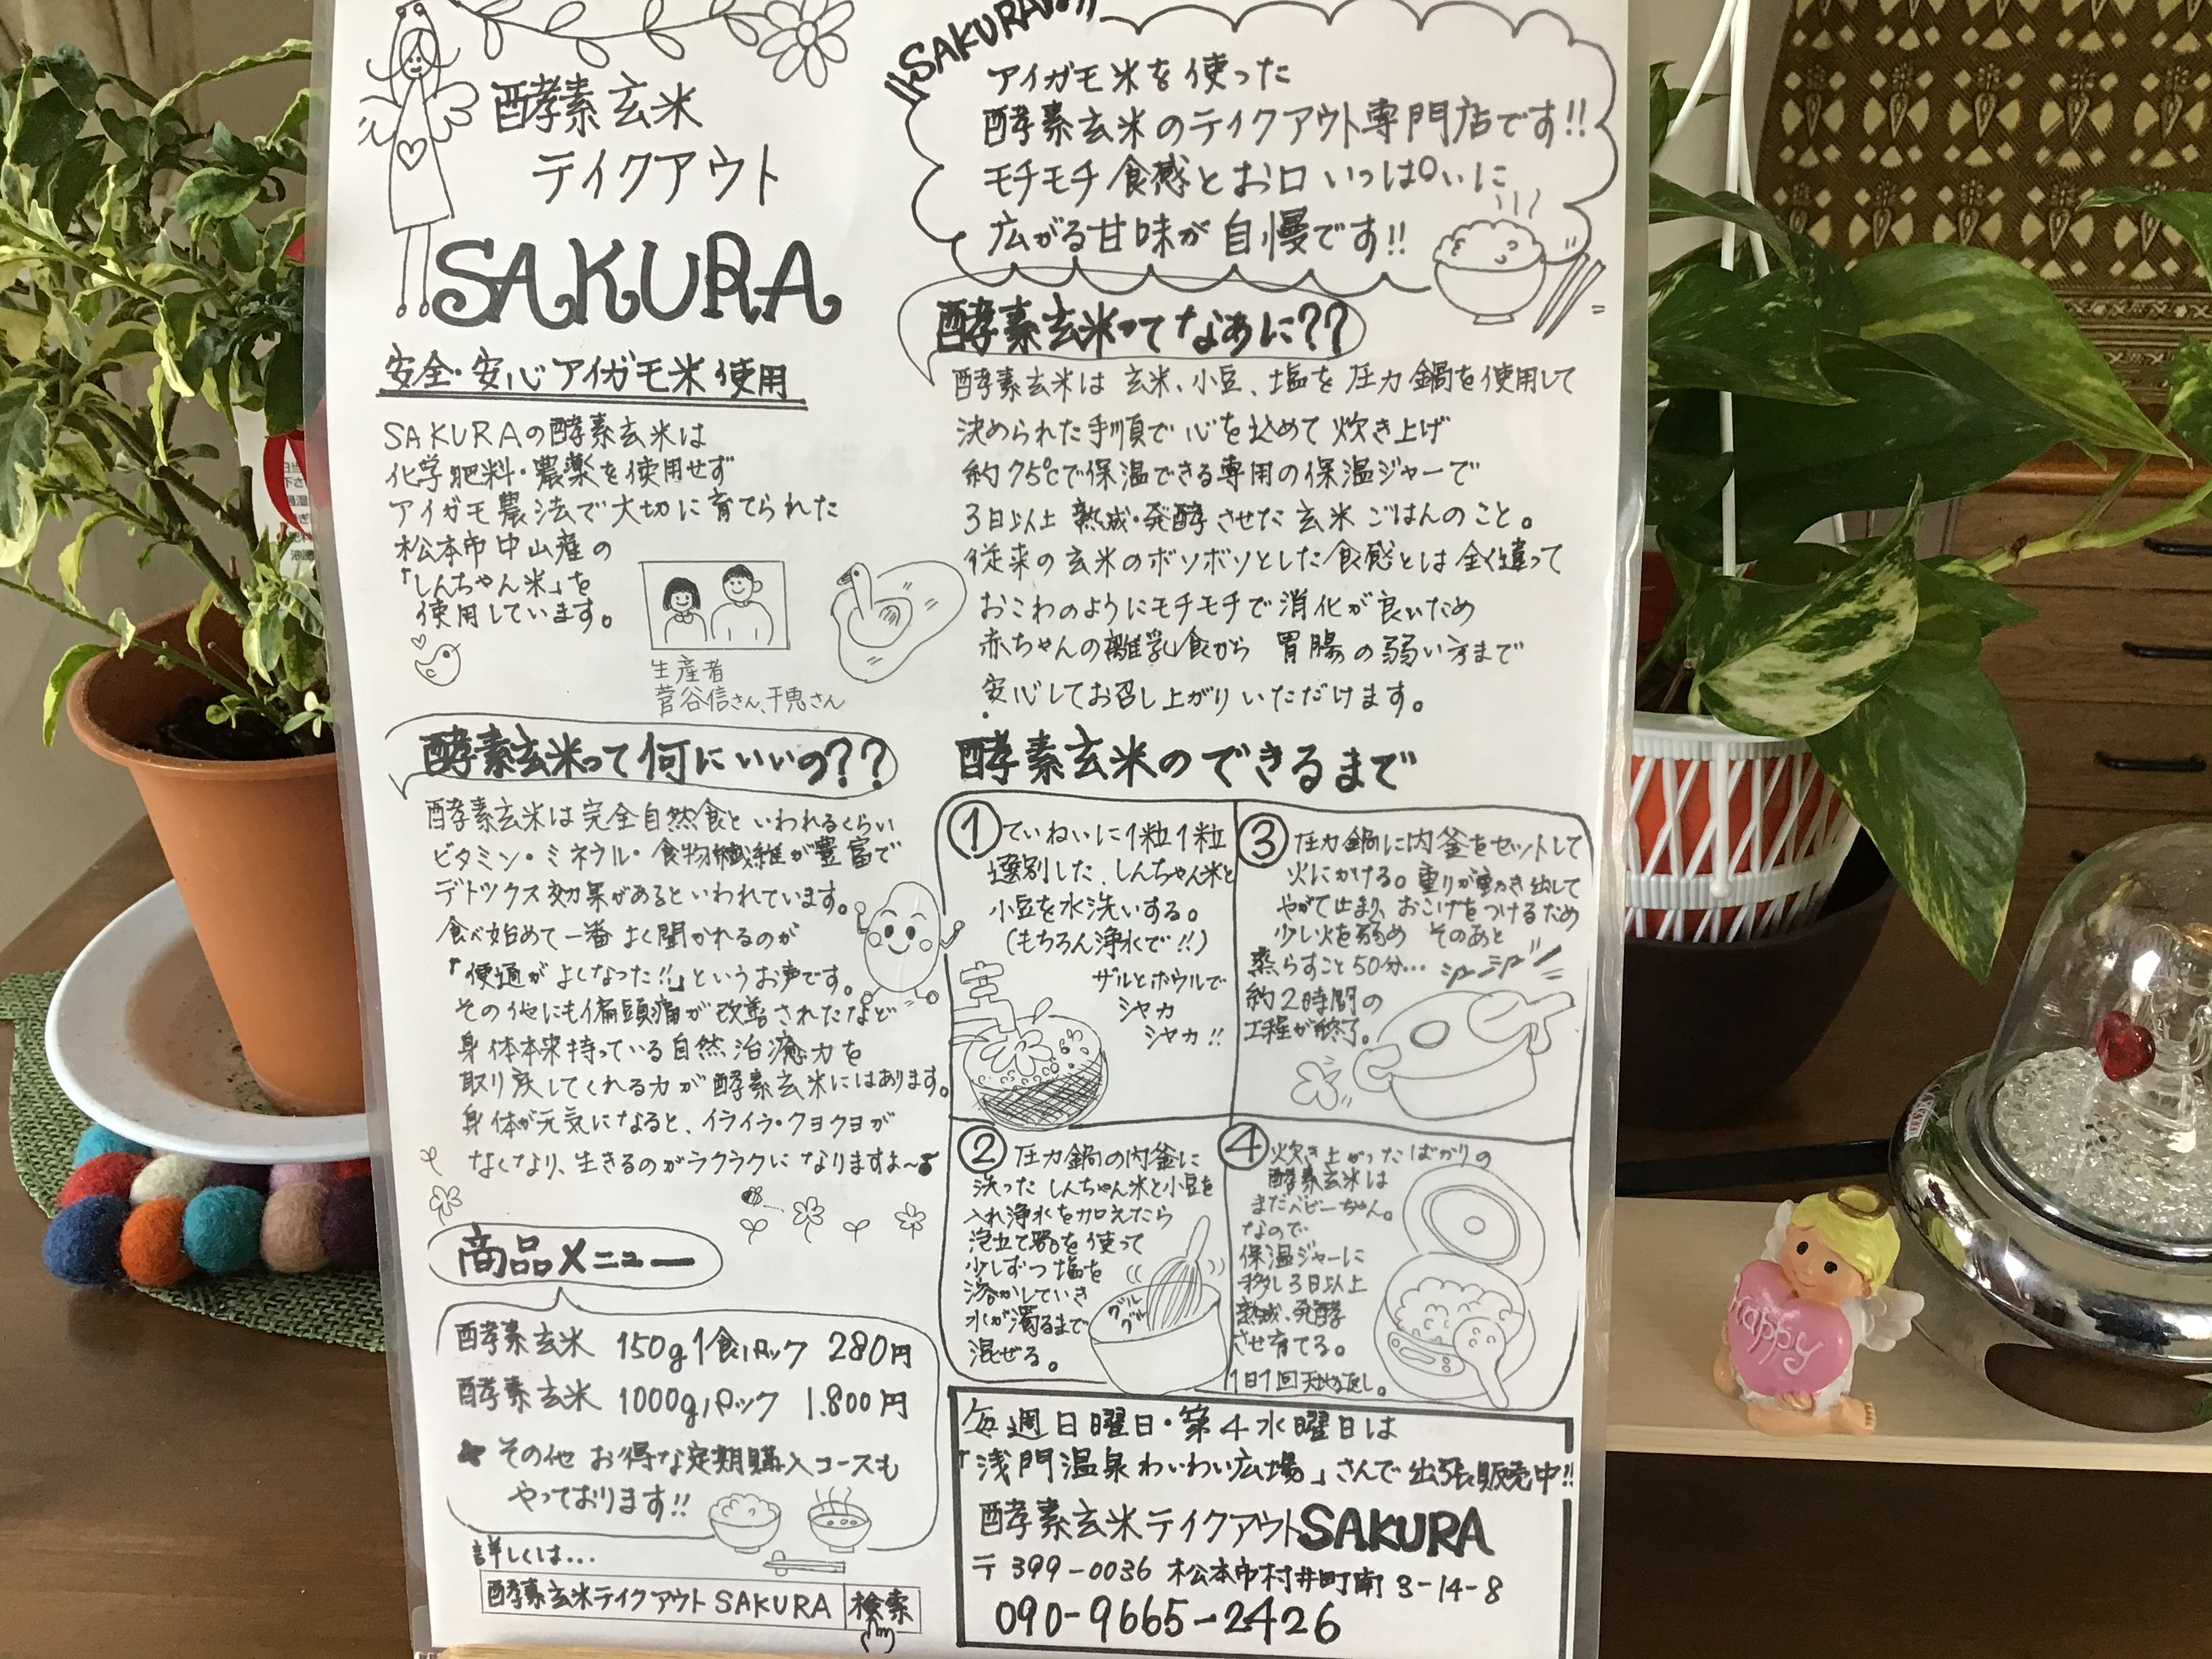 酵素玄米
テイクアウト
SAKURA
安全・安心アイガモ米使用
SAKURAの酵素玄米は
化学肥料・農薬を使用せず
アイガモ農法で大切に育てられた
松本市中山産の
「しんちゃん米」を
使用しています。
生産者
菅谷信さん、千恵さん
酵素玄米って何にいいの??
酵素玄米は完全自然食といわれるくらい
ビタミン・ミネラル・食物繊維が豊富で
デトックス効果があるといわれています。
食べ始めて一番よく聞かれるのが
「便通がよくなった!!」というお声です。
その他にも偏頭痛が改善されたなど
身体本来持っている自然治癒力を
取り戻してくれる力が酵素玄米にはあります。
身体が元気になると、イライラ・クヨクヨが
なくなり、生きるのがラクラクになりますよ〜♪
商品メニュー
酵素玄米 150g1食パック 280円
酵素玄米 1000gパック 1.800円
その他 お得な定期購入コースも
やっております!!
詳しくは...
酵素玄米テイクアウト SAKURA 検索
SAKURAは
アイガモ米を使った
酵素玄米のテイクアウト専門店です!!
モチモチ食感とお口いっぱいに
広がる甘味が自慢です!!
酵素玄米ってなあに??
酵素玄米は玄米、小豆、塩を圧力鍋を使用して
決められた手順で心を込めて炊き上げ
約75℃で保温できる専用の保温ジャーで
3日以上熟成・発酵させた玄米ごはんのこと。
従来の玄米のボソボソとした食感とは全く違って
おこわのようにモチモチで消化が良いため
赤ちゃんの離乳食から 胃腸の弱い方まで
安心してお召し上がりいただけます。
酵素玄米のできるまで
① ていねいに1粒1粒
選別した、しんちゃん米と
小豆を水洗いする。
(もちろん浄水で!!)
ザルとボウルで
シャカ
シャカ!!
② 圧力鍋の内釜に
洗ったしんちゃん米と小豆を
入れ浄水を加えたら
泡立て器を使って
少しずつ塩を
溶かしていき
水が濁るまで
混ぜる。
グル
グル
③ 圧力鍋に内釜をセットして
火にかける。重りが動き出して
やがて止まり、おこげをつけるため
少し火を弱め そのあと
蒸らすこと50分...
約2時間の
工程が終了。
④ 炊き上がったばかりの
酵素玄米は
まだベビーちゃん。
なので
保温ジャーに
移し3日以上
熟成・発酵
させ育てる。
1日1回天地返し。
毎週日曜日・第4水曜日は
「浅間温泉わいわい広場」さんで出張販売中!!
酵素玄米テイクアウトSAKURA
〒399-0036 松本市村井町南3-14-8
090-9665-2426
happy